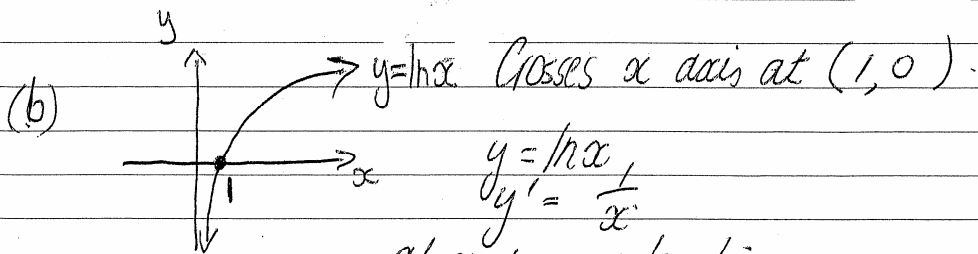 y
(b) y=lnx Crosses x axis at (1,0).
x
1
y = lnx
y' = 1/x